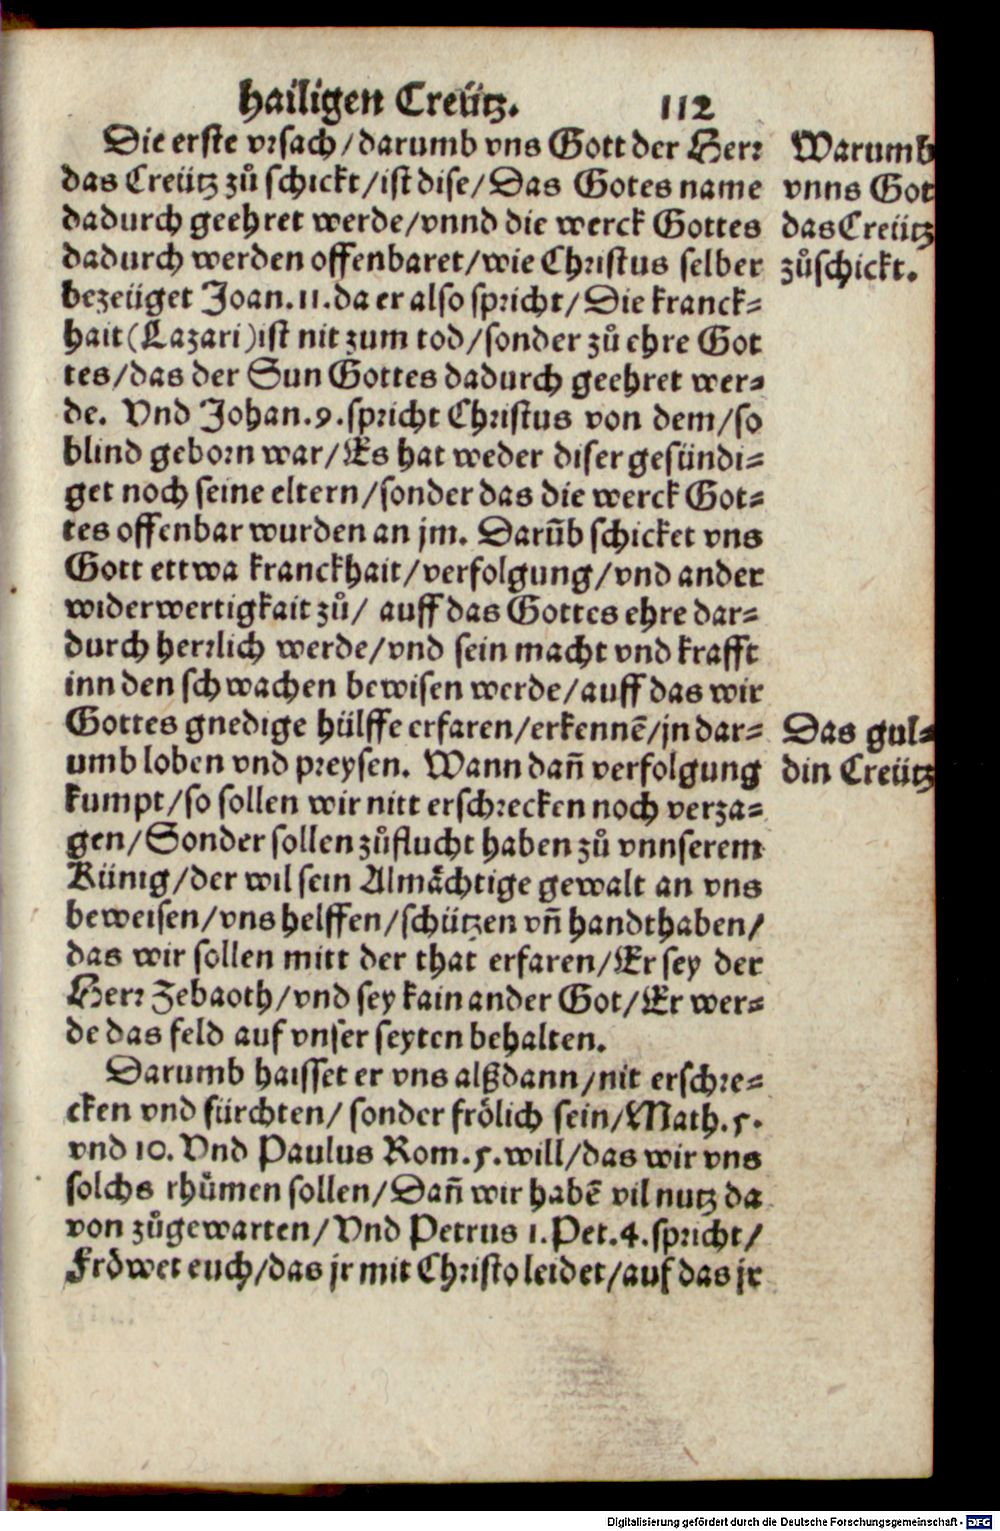 hailigen Creütz. 112
Die erste vrsach/darumb vns Gott der Herr
das Creütz zů schickt/ist dise/Das Gotes name
dadurch geehret werde/vnnd die werck Gottes
dadurch werden offenbaret/wie Christus selber
bezeüget Joan.11.da er also spricht/Die kranck⸗
hait(Lazari)ist nit zum tod/sonder zů ehre Got
tes/das der Sun Gottes dadurch geehret wer⸗
de. Vnd Johan.9.spricht Christus von dem/so
blind geborn war/Es hat weder diser gesündi⸗
get noch seine eltern/sonder das die werck Got⸗
tes offenbar wurden an jm. Darũb schicket vns
Gott ettwa kranckhait/verfolgung/vnd ander
widerwertigkait zů/ auff das Gottes ehre dar⸗
durch herrlich werde/vnd sein macht vnd krafft
inn den schwachen bewisen werde/auff das wir
Gottes gnedige hülffe erfaren/erkennẽ/jn dar⸗
umb loben vnd preysen. Wann dañ verfolgung
kumpt/so sollen wir nitt erschrecken noch verza⸗
gen/Sonder sollen zůflucht haben zů vnnserem
Künig/der wil sein Almåchtige gewalt an vns
beweisen/vns helffen/schützen vñ handthaben/
das wir sollen mitt der that erfaren/Er sey der
Herr Zebaoth/vnd sey kain ander Got/Er wer⸗
de das feld auf vnser seyten behalten.
Darumb haisset er vns alßdann/nit erschre⸗
cken vnd fürchten/ sonder frölich sein/Math.5.
vnd 10. Vnd Paulus Rom.5.will/das wir vns
solchs rhůmen sollen/Dañ wir habẽ vil nutz da
von zůgewarten/Vnd Petrus 1.Pet.4.spricht/
Fröwet euch/das jr mit Christo leidet/auf das jr
Warumb
vnns Got
das Creütz
zůschickt.
Das gul⸗
din Creütz
Digitalisierung gefördert durch die Deutsche Forschungsgemeinschaft - DFG